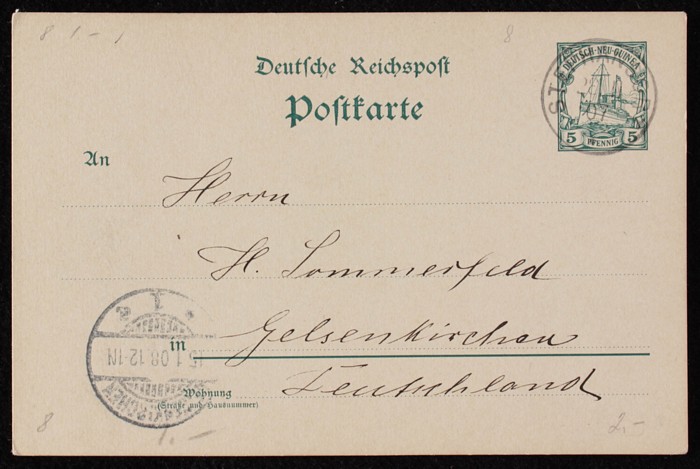 8 1-1
8
Deutsche Reichspost
Postkarte
DEUTSCH-NEU-GUINEA
5 PFENNIG 5
07
An
Herrn
H. Sommerfeld
Gelsenkirchen
in
Deutschland
Wohnung
(Straße und Hausnummer)
1
1.08.12-1N
8
1.-
2.-